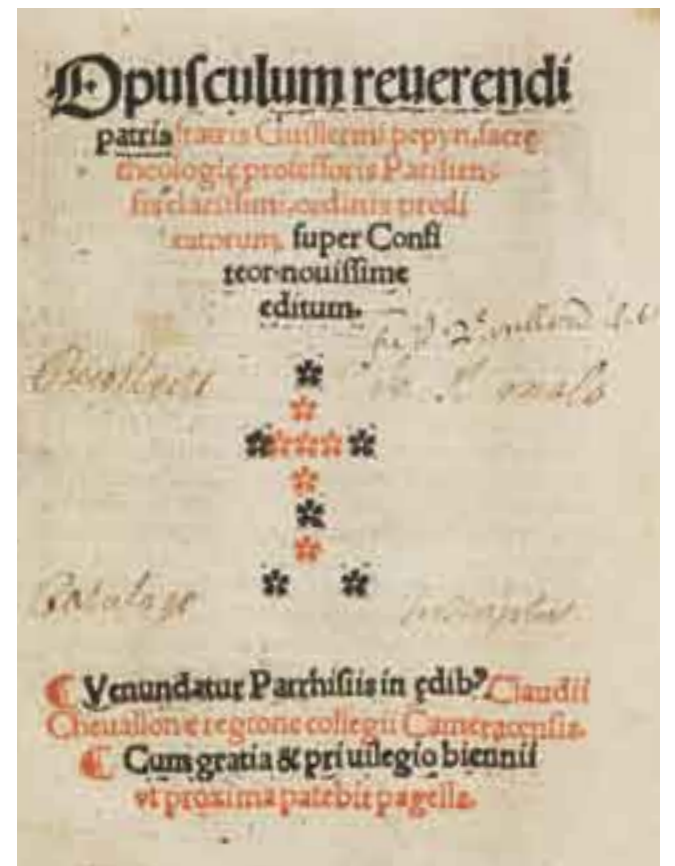 Opuſculum reuerendi
patris fratris Guillermi pepyn, ſacrę
theologię profeſſoris Pariſien-
ſis clariſſimi, ordinis predi
catorum, ſuper Confi
teor nouiſſime
editum.
malo
Venundatur Parrhiſiis in ędibꝰ Claudii
Cheuallon e regione collegii Cameracenſis.
Cum gratia & priuilegio biennii
vt proxima patebit pagella.